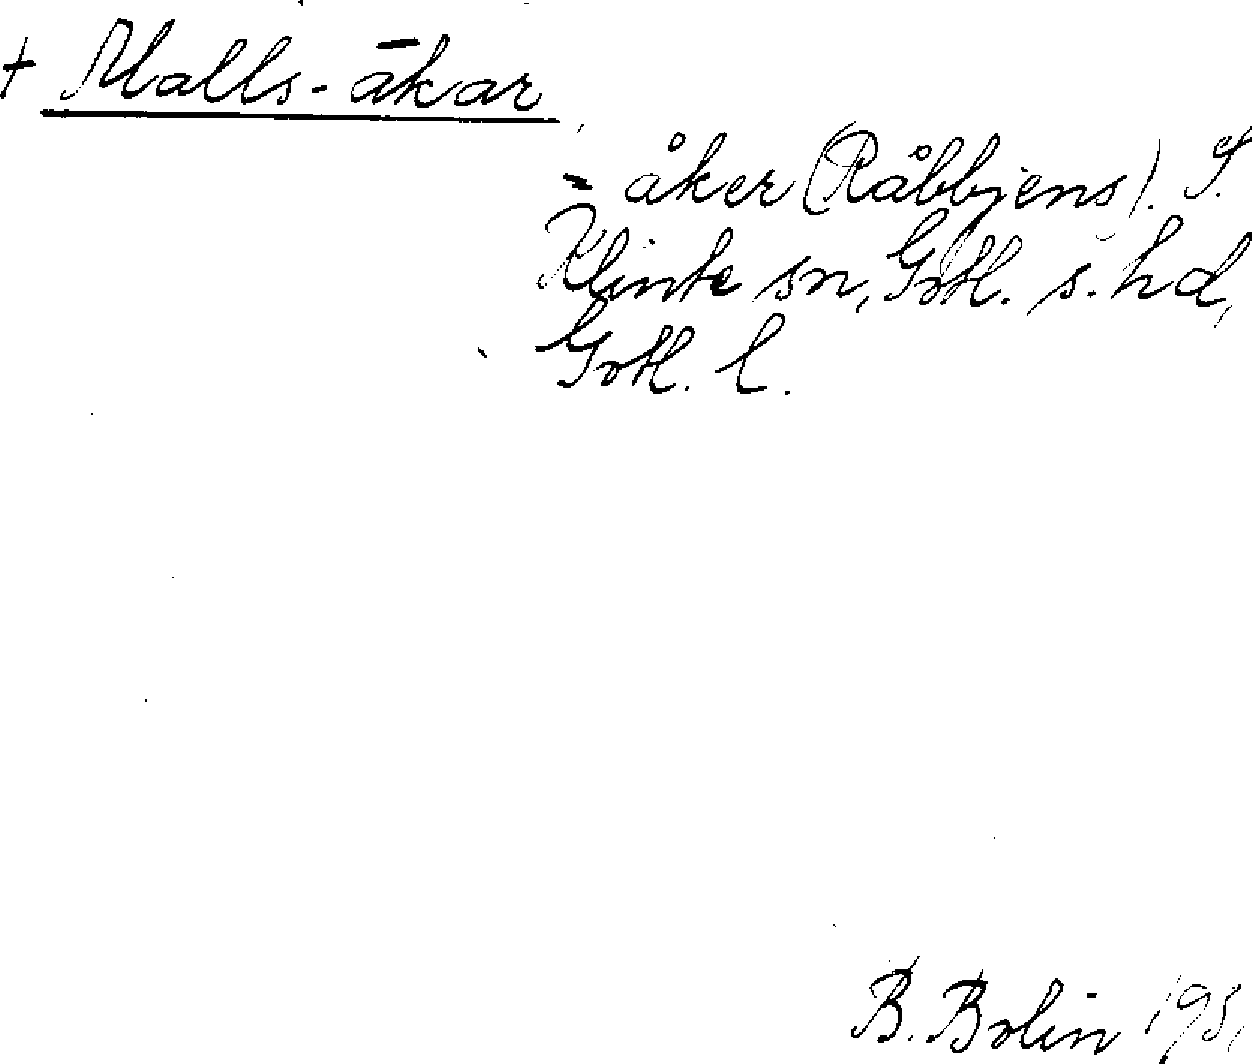 + Malls-ākar
= åker (Råbbjens). I
Klinte sn, Gotl. s. hd,
Gotl. l.
B. Bolin 195